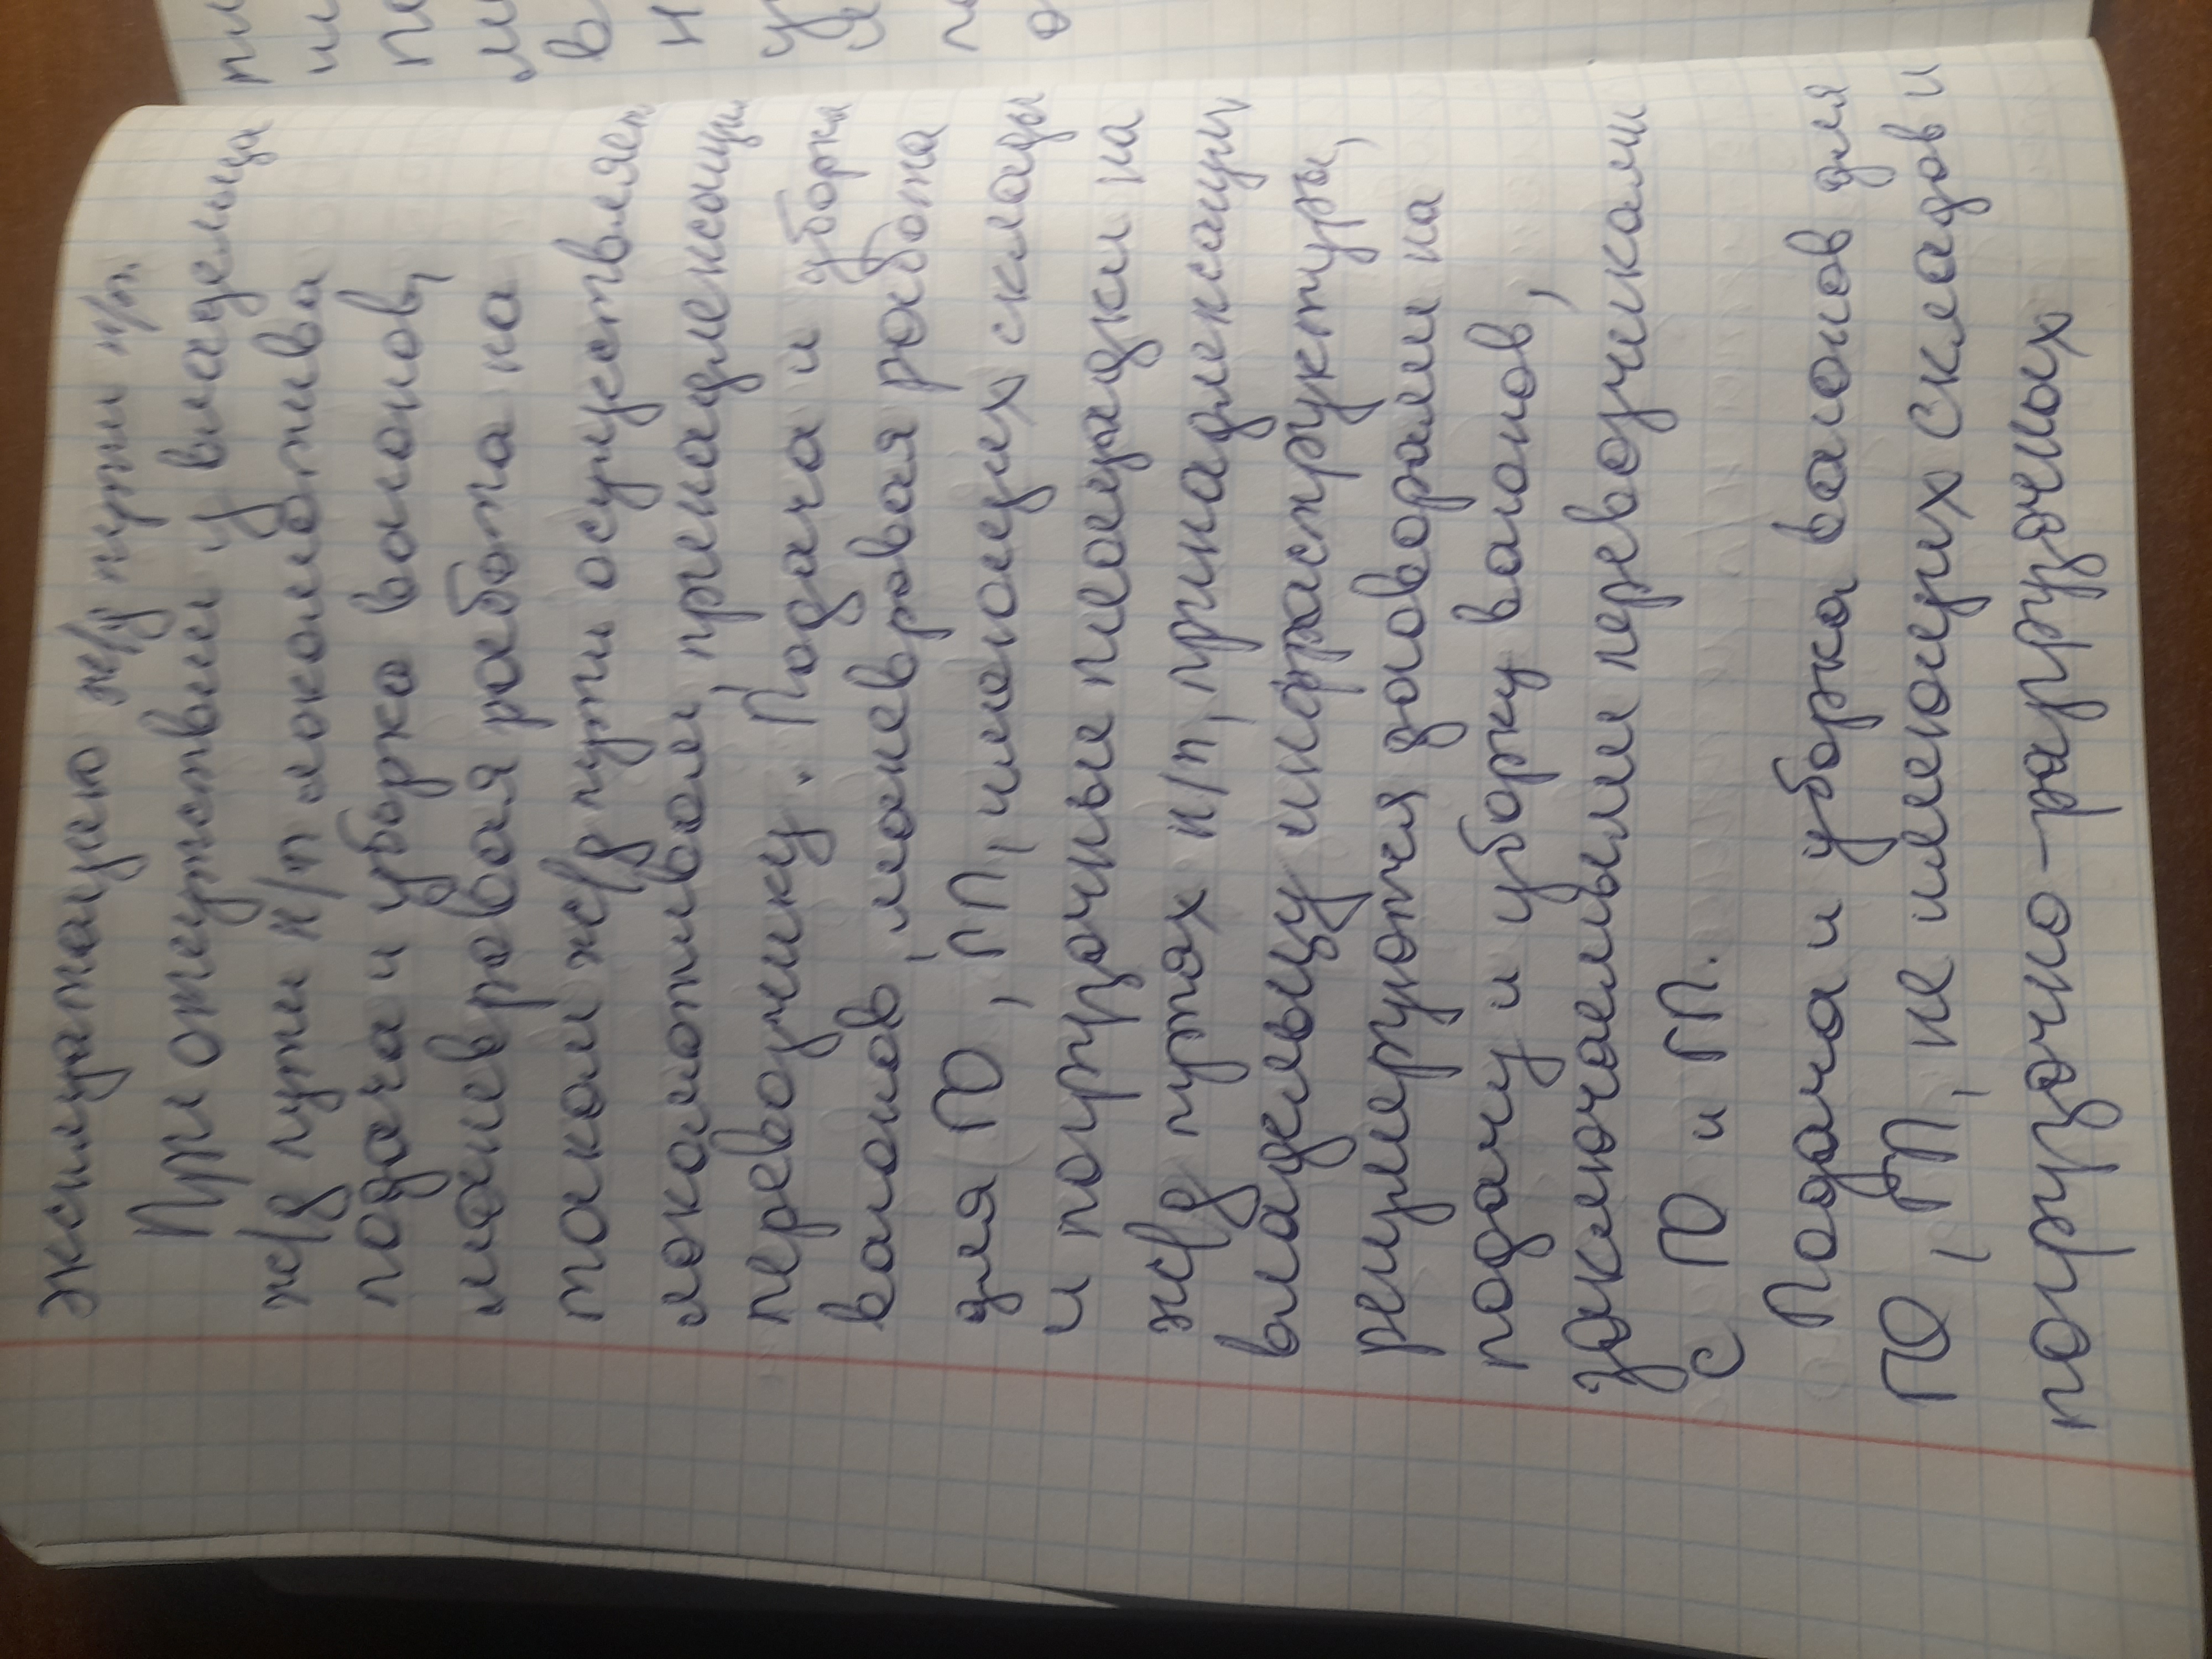 эксплуатацию ж/д пути н/п.
При отсутствии у владельца
ж/д пути н/п локомотива
подача и уборка вагонов,
маневровая работа на
таком ж/д пути осуществляет
локомотивом, принадлежащим
перевозчику. Подача и уборка
вагонов, маневровая работа
для ГО, ГП, имеющих склады
и погрузочные площадки на
ж/д путях н/п, принадлежащих
владельцу инфраструктуры,
регулируются договорами на
подачу и уборку вагонов,
заключаемыми перевозчиками
с ГО и ГП.
Подача и уборка вагонов для
ГО, ГП, не имеющих складов и
погрузочно-разгрузочных